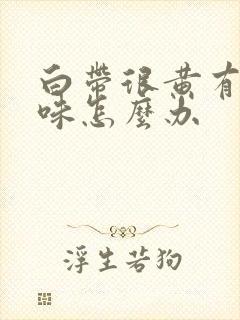 白帶很黃有
味怎麼办
浮生若狗